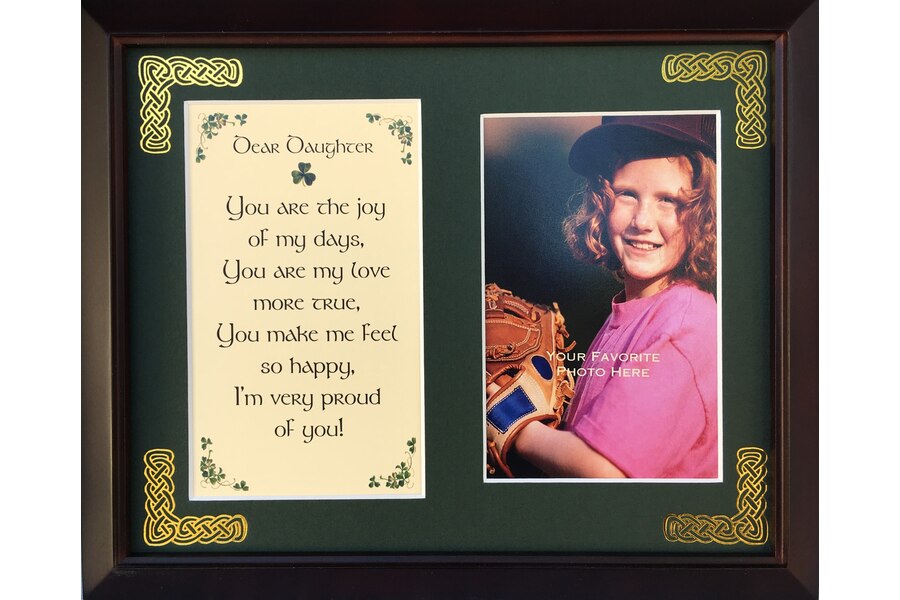 Dear Daughter
You are the joy
of my days,
You are my love
more true,
You make me feel
so happy,
I'm very proud
of you!
Your Favorite
Photo Here